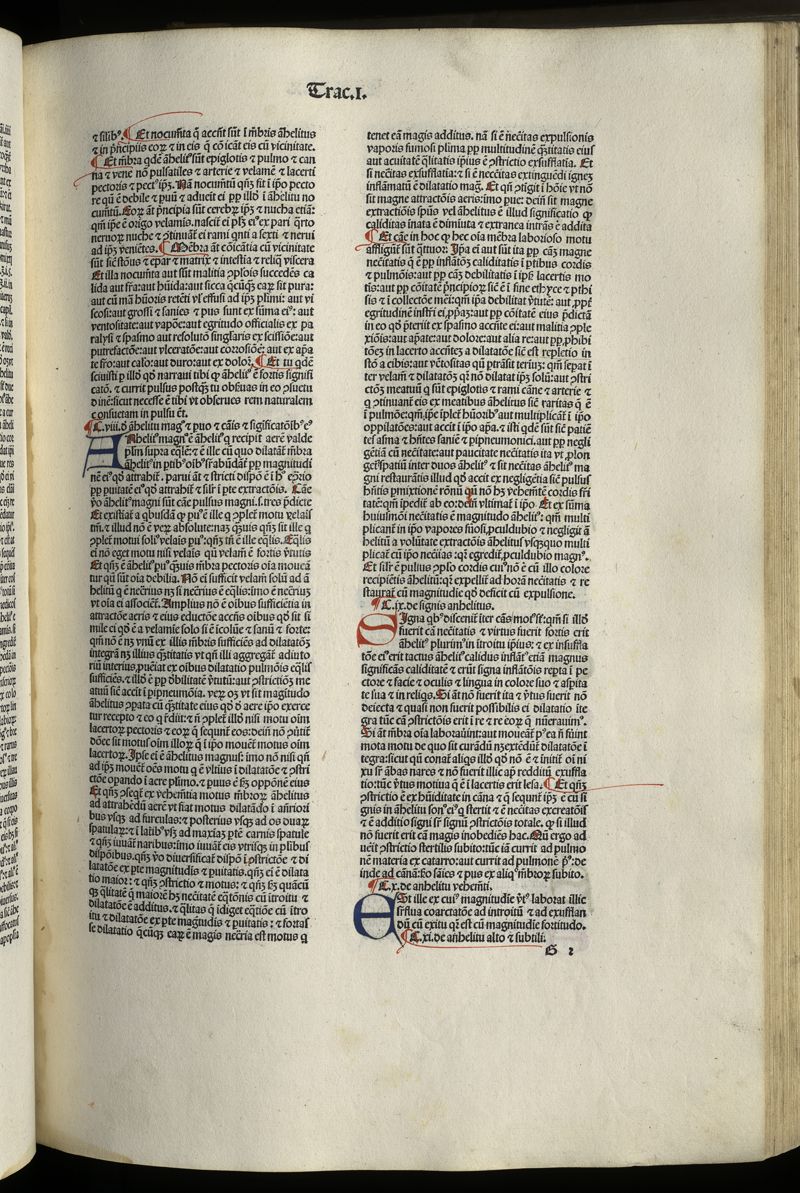 Trac.I.
⁊ silibꝰ. ¶ Et nocumẽta q̃ accñt sũt ĩ mẽbris ãhelitus
⁊ in pñcipiis eorꝝ ⁊ in eis q̃ cõicãt eis cũ vicinitate.
¶ Et mẽbra qdẽ ãhelitꝰ sũt epiglotis ⁊ pulmo ⁊ can
na ⁊ vene nõ pulsatiles ⁊ arterie ⁊ velamẽ ⁊ lacerti
pectoris ⁊ pectꝰ ip̃z. Nã nocumẽtũ qñz sit ĩ ip̃o pecto
re qñ ẽ debile ⁊ puũ ⁊ aduẽit ei pp illd ĩ ãhelitu no
cumẽtũ. Eorꝝ aũt pñcipia sũt cerebrꝫ ip̃z ⁊ nucha etiã:
qñ ip̃e ẽ origo velamis. nascit̃ ei plʒ eiꝰ ex pari q̃rto
neruorꝝ nuche ⁊ ꝯtinuãt̃ ei rami qnti a sexti ⁊ nerui
ad ip̃z veniẽtes. ¶ Mẽbra aũt cõicãtia cũ vicinitate
sũt sic̃ stõus ⁊ epar ⁊ matrix ⁊ intestia ⁊ reliq̃ viscera
Et illa nocumẽta aut sũt malitia ꝯplõis succedẽs ca
lida aut fra: aut hũida: aut sicca q̃cũqꝫ eaꝝ sit pura:
aut cũ mã hũoris retẽti vl̓ effusi ad ip̃z plimi: aut vi
scosi: aut grossi ⁊ sanies ⁊ pus sunt ex sũma eiꝰ: aut
ventositate: aut vapõe: aut egritudo officialis ex pa
ralysi ⁊ spasmo aut resolutõ singl̃aris ex scissiõe: aut
putrefactõe: aut vlceratõe: aut corrosiõe: aut ex apa
te fro: aut calõ: aut duro: aut ex dolor. ¶ Et tu qdẽ
sciuisti p illd qd̃ narraui tibi ꝙ ãhelitꝰ ẽ fortis signifi
catõ. ⁊ currit pulsus postqꝫ tu obſuas in eo ꝯsuetu
dinẽ: sicut necesse ẽ tibi vt obserues rem naturalem
consuetam in pulsu ẽt.
¶ C.viii.d̓ ãhelitu magꝰ ⁊ puo ⁊ cãis ⁊ sigificatõibꝰ eꝰ
ANhelitꝰ magnꝰ ẽ ãhelitꝰ q recipit aerẽ valde
plm̃ supra eq̃lẽ: ⁊ ẽ ille cũ quo dilatãt̃ mẽbra
ãhelitꝰ in ptibꝰ oibꝰ sr̃abũdãt̃ pp magnitudi
nẽ eiꝰ qd̃ attrahit̃. parui ãt ⁊ stricti dispõ ẽ ĩ hꝰ cõrio
pp puitatẽ eiꝰ qd̃ attrahit̃ ⁊ silr̃ ĩ pte extractõis. Cãe
vo ãhelitꝰ magni sũt cãe pulsus magni.s. tres p̃dicte
Et existiãt a qbusdã ꝙ puꝰ ẽ ille cũ quo q̃ ꝯplet̃ motꝰ velais
tm̃. ⁊ illud nõ ẽ veꝝ absolute: naz qzuis qñz sit ille q
ꝯplet̃ motui soliꝰ velais puꝰ: qñz tñ ẽ ille eq̃lis. Eq̃lis
ei nõ eget motu nisi velais qñ velam̃ ẽ fortis v̓tutis
Et qñz ẽ ãhelitꝰ puꝰ qzuis mẽbra pectoris oia mouea
tur qñ sũt oia debilia. Nõ ei sufficit velam̃ solũ ad ã
helitũ q ẽ necriꝰ nz si necriꝰ ẽ eq̃lis: imo ẽ necriuz
vt oia ei associẽt̃. Amplius nõ ẽ oibus sufficiẽtia in
attractõe aeris ⁊ eius eductõe accñs oibus qd̃ sit si
mile ei qd̃ ẽ a velamie solo si ẽ icolũe ⁊ sanũ ⁊ forte:
qñ nõ ẽ nz vnũ ex illis mẽbris sufficiẽs ad dilatatõz
integrã nz illius q̃titatis vt qñ illi aggregãt̃ adiuto
riũ interius, pueiat ex oibus dilatatio pulmõis eq̃lis
sufficiẽs. ⁊ illd̃ ẽ pp debilitatẽ v̓tutũ: aut ꝯstrictiõz me
atuũ sic̃ accit ĩ pipneumõia. veꝝ oz vt sit magitudo
ãhelitus ꝯpata cũ q̃titate eius qd̃ d̓ aere ip̃o exerce
tur recepto ⁊ eo q̃ rediit: ⁊ ñ ꝯplet̃ illd̃ nisi motu oim
lacertoꝝ pectoris ⁊ eorꝝ q sequnt̃ eos: deiñ nõ ꝯtĩit̃
dõec sit motus oim illorꝝ q ĩ ip̃o mouẽt̃ motus oim
lacertorꝝ. Ip̃e ei ẽ ãhelitus magnus: imo nõ nisi qñ
ad ip̃z mouẽt̃ oẽs motu q ẽ vltius ĩ dilatatõe ⁊ ꝯstri
ctõe opando ĩ aere plimo. ⁊ puus ẽ hʒ opponẽ eius
Et qñz ꝯseqt̃ ex vehemẽtia motus mẽbrorꝝ ãhelitus
ad attrahẽdũ aerẽ vt fiat motus dilatãdo ĩ añriori
bus vsqꝫ ad furculas: ⁊ posterius vsqꝫ ad os duarꝝ
spatularꝝ: ⁊ ĩ latibꝰ vsqꝫ ad maxiãz ptẽ carnis spatule
⁊ qñz iuuãt naribus: imo iuuãt̃ eis vtrisqꝫ in plibus
dispõibus. qñz vo diuersificat̃ dispõ ĩ ꝯstrictõe ⁊ di
latatõe ex pte magitudis ⁊ puitatis. qñz ei ẽ dilata
tio maior: ⁊ qñz ꝯstrictio ⁊ motus: ⁊ qñz hꝫ quãcũ
qꝫ q̃litatẽ q maiorẽ hʒ necitatẽ eq̃tõnis cũ ĩtroitu ⁊
dilatatõe ẽ additus. ⁊ q̃litas q idiget eq̃tiõe cũ ĩtro
itu ⁊ dilatatõe ex pte magitudis ⁊ puitatis: ⁊ fortas
se dilatatio q̃cũqꝫ earꝝ ẽ magis nec̃ria est motus q
tenet eã magis additus. nã si ẽ ñecitas expulsionis
vaporis fumosi plima pp multitudinẽ q̃titatis eius
aut acuitatẽ q̃litatis ip̃ius ẽ ꝯstrictio exsufflatia. Et
si necitas exsufflatia: ⁊ si ẽ necitas extinguẽdi ignez
inflamatũ ẽ dilatatio mag̃. Et qñ ꝯtigit ĩ hoie vt nõ
sit magne attractõis aeris: imo pue: deiñ sit magne
extractiõis sp̃us vel ãhelitus ẽ illud significatio ꝙ
caliditas inata ẽ diminuta ⁊ extranea intrãs ẽ addita
¶ Et cãe in hoc ꝙ hec oia mẽbra laborioso motu
affligũt̃ sũt q̃tuor. Ip̃a ei aut sũt ita pp cãz magne
necitatis q ẽ pp inflatõz caliditatis ĩ ptibus cordis
⁊ pulmõis: aut pp cãz debilitatis ĩ ip̃is lacertis mo
tis: aut pp cõitatẽ pñcipiorꝝ sic̃ ẽ ĩ fine ethyce ⁊ pthi
sis ⁊ ĩ collectõe mẽi: qñ ip̃a debilitat̃ v̓tutẽ: aut, ppt̃
egritudinẽ instr̃i ei, ppaz: aut pp cõitatẽ eius p̃dictã
in eo qd̃ p̃terit ex spasmo accñte ei: aut malitia ꝯple
xiõis: aut apate: aut dolore: aut alia re: aut pp, phibi
tõez in lacerto accñtez a dilatatõe sic̃ est repletio in
stõ a cibis: aut vẽtositas qñ ptrãsit teriuz: qñ sepat̃ ĩ
ter velam̃ ⁊ dilatatõz qz nõ dilatat̃ ip̃z solũ: aut ꝯstri
ctõz meatuũ q sũt epiglotis ⁊ rami cãne ⁊ arterie ⁊
q ꝯtinuant̃ eis ex meatibus ãhelitus sic̃ raritas q ẽ
ĩ pulmõe: qñ, ip̃e iplet̃ hũoribꝰ aut multiplicãt̃ ĩ ip̃o
oppilatões: aut accit ĩ ip̃o apa. ⁊ isti qdẽ sũt sic̃ patiẽ
tes asma ⁊ hñtes saniẽ ⁊ pipneumonici. aut pp negli
gẽtiã cũ necitate: aut paucitate necitatis ita vt, plon
get̃ spatiũ inter duos ãhelitꝰ ⁊ sit necitas ãhelitꝰ ma
gni restauratis illud qd̃ accit ex negligẽtia sic̃ pulsus
hñtis pmixtionẽ rõnũ qñ nõ hz vehemẽtẽ cordis fri
tatẽ: qñ ipedit̃ ab eo: deiñ vltimat̃ ĩ ip̃o Et ex sũma
huiusmõi necitatis ẽ magnitudo ãhelitꝰ: qñ multi
plicant̃ in ip̃o vapores fũosi, pculdubio ⁊ negligit̃ ã
helitũ a volũtate extractõis ãhelituꝰ vsqzquo multi
plicat̃ cũ ip̃o necitas: qz egredit̃, pculdubio magnꝰ.
Et silr̃ ẽ pulius ꝯplõ cordis cuiꝰ nõ ẽ cũ illo colore
recipiẽtis ãhelitũ: qz expellit̃ ad horã necitatis ⁊ re
staurat̃ cũ magnitudie qd̃ deficit cũ expulsione.
¶ C.ix. de signis anhelitus.
SIgna qbꝰ discernit̃ iter cãs mosꝰ sũt: qm̃ si illd̃
fuerit cã necitatis ⁊ virtus fuerit fortis erit
ãhelitꝰ plurimꝰ in ĩtroitu ip̃ius: ⁊ ex insuffla
tõe eiꝰ erit tactus ãhelitꝰ calidus inflãtꝰ etiã magnus
significãs caliditatẽ ⁊ erũt signa inflãtõis repta ĩ pe
ctore ⁊ facie ⁊ oculis ⁊ lingua in colore suo ⁊ aspita
te sua ⁊ in reliqs. Si ãt nõ fuerit ita ⁊ v̓tus fuerit nõ
deiecta ⁊ quasi non fuerit possibilis ei dilatatio ite
gra tũc cã ꝯstrictõis erit ĩ re ⁊ re eorꝝ q̃ nũerauimꝰ.
Si ãt mẽbra oia laborauĩt: aut moueãt̃ pꝰ ea ñ fũint
mota motu de quo sit curãdũ nz extẽdũt̃ dilatatõe ĩ
tegra: sicut qñ conat̃ aliqs illd̃ qd̃ nõ ẽ ⁊ initit̃ oi ni
xu sr̃ ãbas nares ⁊ nõ fuerit illic ap̃ redditũ exuffla
tio: tũc v̓tus motiua q ẽ ĩ lacertis erit lesa. ¶ Et qñz
ꝯstrictio ẽ ex hũiditate in cãna ⁊ q sequnt̃ ip̃z ẽ cũ si
gnis in ãhelitu sonꝰ eiꝰ q stertit ⁊ ẽ necitas excreatõis
⁊ ẽ additio signi sr̃ signũ ꝯstrictõis totale. ꝙ si illud
nõ fuerit erit cã magis inobediẽs hac. Nũ ergo ad
uẽit ꝯstrictio sterilis subito: tũc iã currit ad pulmo
nẽ materia ex catarro: aut currit ad pulmonẽ pꝰ: de
inde ad cãnã: ẽo sãies ⁊ pus ex aliqꝰ mẽbrorꝝ subito.
¶ C.x. de anhelitu vehemẽti.
ESt ille ex cuiꝰ magnitudie v̓tꝰ laborat illic
sr̃flua coarctatõe ad introitũ ⁊ ad exufflan
dũ cũ exitu qz est cũ magnitudie fortitudo.
¶ C.xi. de anhelitu alto ⁊ subtili.
G 2